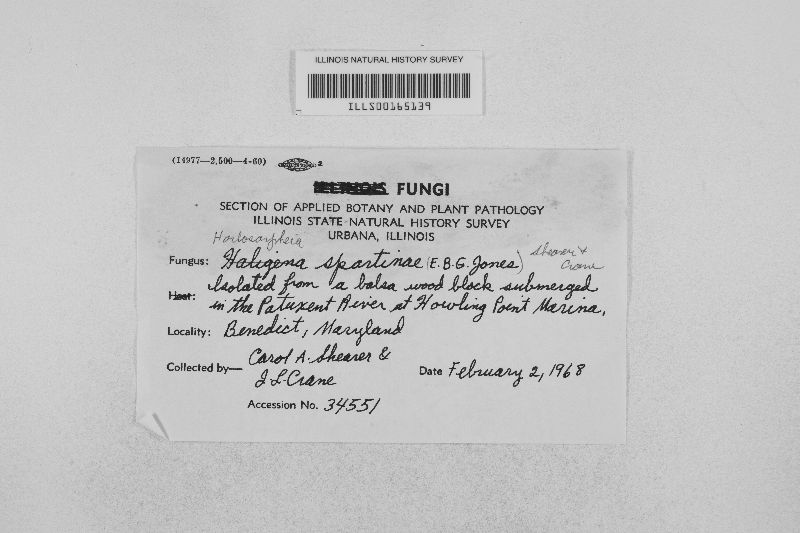 ILLINOIS NATURAL HISTORY SURVEY
ILLS00165139
(14977—2,500—4-60) 2
ILLINOIS FUNGI
SECTION OF APPLIED BOTANY AND PLANT PATHOLOGY
ILLINOIS STATE NATURAL HISTORY SURVEY
URBANA, ILLINOIS
Shearer & Crane
Fungus: Haligena spartinae (E.B.G. Jones)
Host: Isolated from a balsa wood block submerged
in the Patuxent River at Howling Point Marina,
Locality: Benedict, Maryland
Collected by— Carol A. Shearer &
J L Crane
Date February 2, 1968
Accession No. 34551